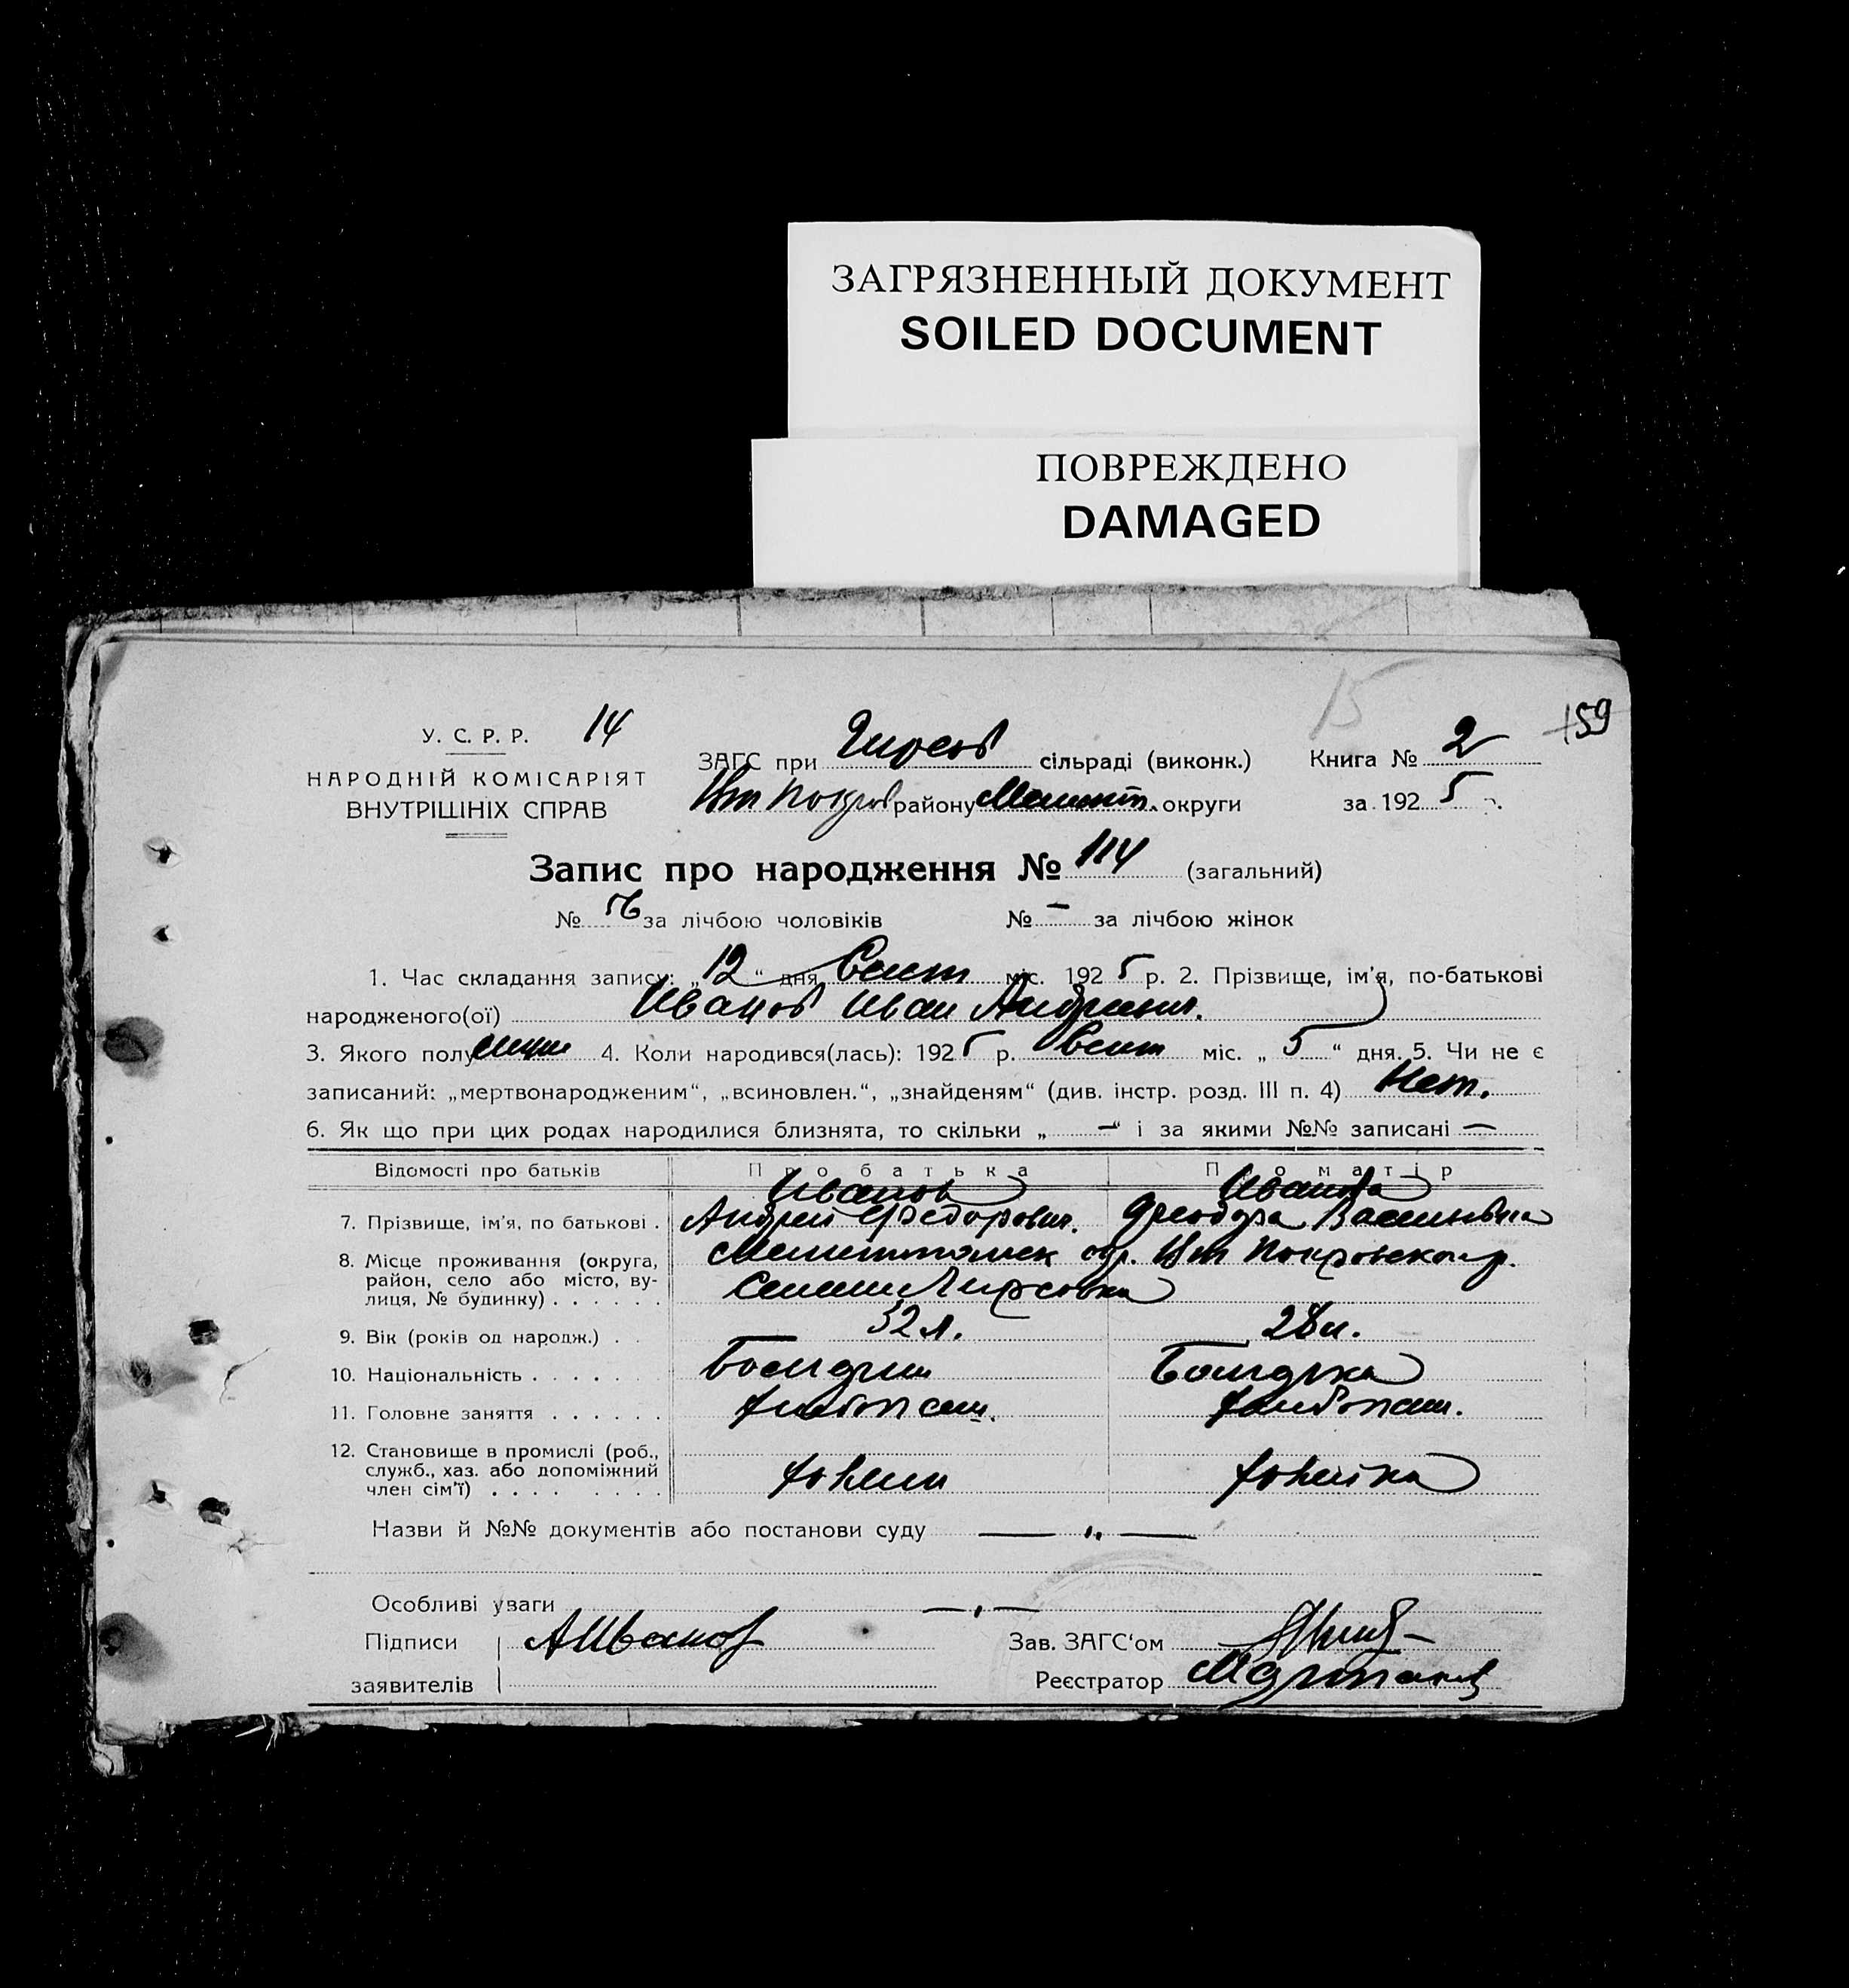 ЗАГРЯЗНЕННЫЙ ДОКУМЕНТ
SOILED DOCUMENT
ПОВРЕЖДЕНО
DAMAGED
15
159
У. С. Р. Р. 14
НАРОДНІЙ КОМІСАРІЯТ
ВНУТРІШНІХ СПРАВ
ЗАГС при сільраді (виконк.) Книга № 2
району округи за 192 5 р.
Запис про народження № 114 (загальний)
№ 56 за лічбою чоловіків № — за лічбою жінок
1. Час складання запису: „12“ дня Сент міс. 192 5 р. 2. Прізвище, ім'я, по-батькові
народженого(ої) Иванов Иван Андреевич.
3. Якого полу 4. Коли народився(лась): 192 5 р. Сент міс. „ 5 “ дня. 5. Чи не є
записаний: „мертвонародженим“, „всиновлен.“, „знайденям“ (див. інстр. розд. III п. 4) Нет.
6. Як що при цих родах народилися близнята, то скільки „ — “ і за якими №№ записані —
Відомості про батьків Про батька Про матір
Иванов Иванова
7. Прізвище, ім'я, по батькові . Андрей Федорович. Васильевна
8. Місце проживання (округа, район, село або місто, вулиця, № будинку) . . . . . . Мелитопольск окр. Цм Покровского р.
Селени Гирсовка
9. Вік (років од нарож.) . . 32 л. 28 л.
10. Національність . . . . . . Болгарин Болгарка
11. Головне заняття . . . . . . хлебопаш. хлебопаш.
12. Становище в промислі (роб., служб., хаз. або допоміжний член сім'ї) . . . . . . . . хозяин хозяйка
Назви й №№ документів або постанови суду — „ —
Особливі уваги — „ —
Підписи АИванов Зав. ЗАГС'ом
заявителів Реєстратор